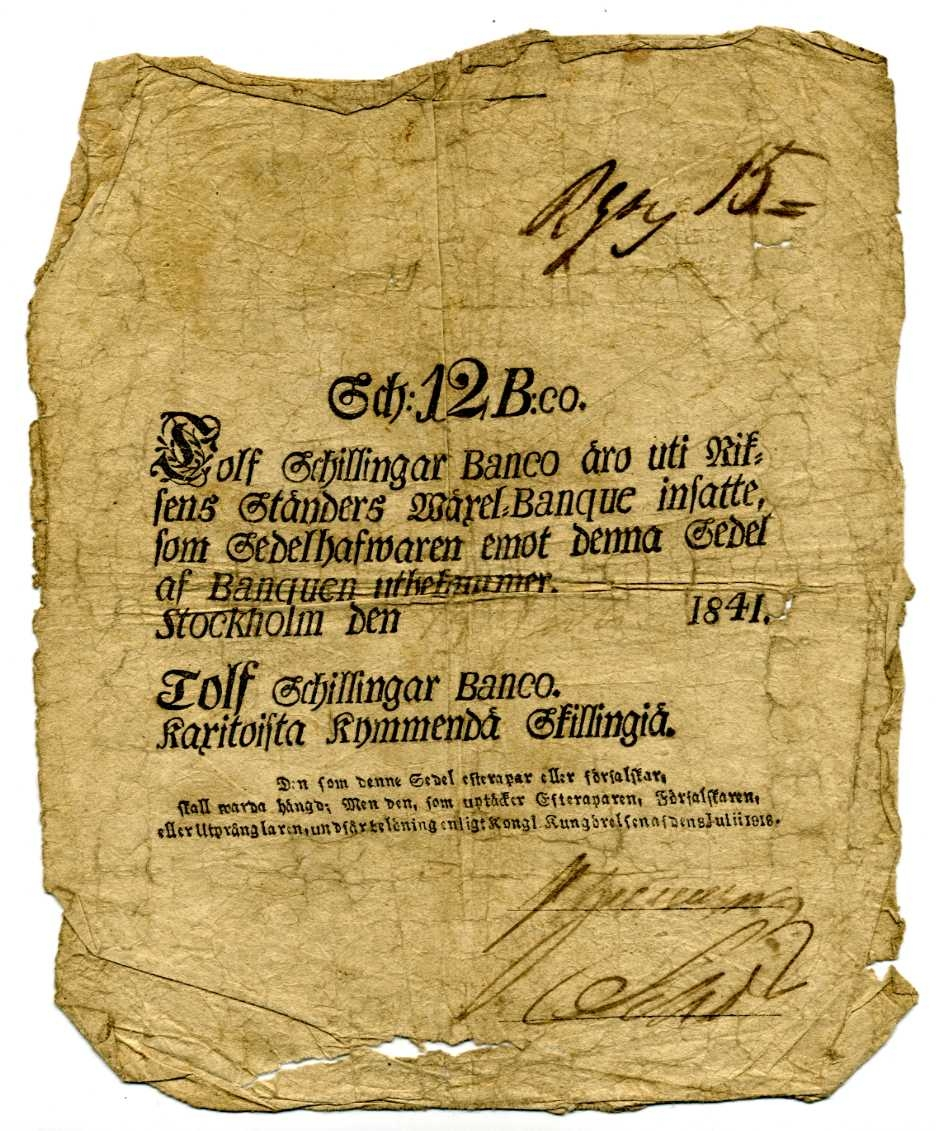 Sch: 12 B:co.
Tolf Schillingar Banco äro uti Rik-
sens Ständers Wäxel-Banque insatte,
som Sedelhafwaren emot denna Sedel
af Banquen utbekommer.
Stockholm den 1841.
Tolf Schillingar Banco.
Kaxitoista Kymmendä Skillingiä.
D:n som denne Sedel efterapar eller förfalskar,
skall warda hängd; Men den, som uptäcker Efteraparen, Förfalskaren,
eller Utprånglaren, undfår belöning enligt Kongl. Kungörelsen af den 8 Julii 1818.